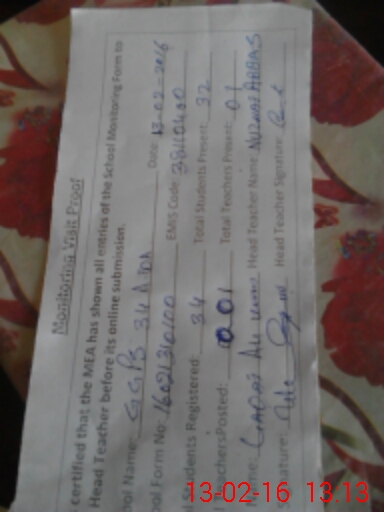 Monitoring Visit Proof
certified that the MEA has shown all entries of the School Monitoring Form to
Head Teacher before its online submission.
ool Name: GGPS 34 A TDA Date: 13-02-2016
ool Form No: EMIS Code:
l Students Registered: 34 Total Students Present: 32
l TeachersPosted: 01 Total Teachers Present: 01
Name: Head Teacher Name: ABBAS
Signature: Head Teacher Signature:
13-02-16 13:13